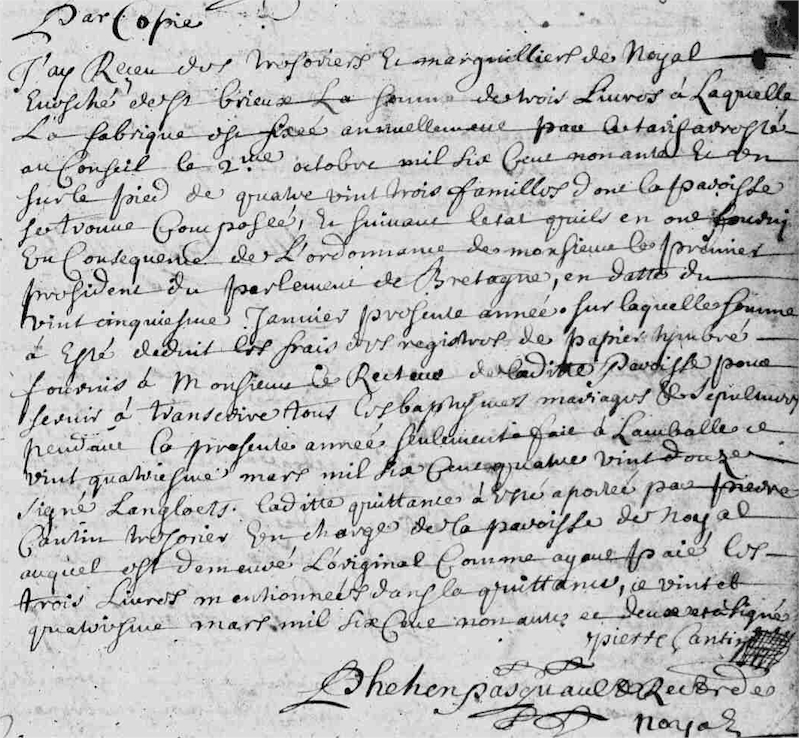 Par Copie
J'ay Reçeu des tresoriers Et marguilliers de Noyal
Evesché de St brieux La somme de trois Livres à Laquelle
La fabrique est fixeé annuellement par le tarif aresté
au Conseil le 2me octobre mil six Cent nonante Et un
sur le pied de quatre vint trois familles dont la paroisse
se trouve Composeé, Et suivant letat quils en ont fourni
En Consequence de L'ordonnance de monsieur le premier
president du parlement de Bretagne, en datte du
vint cinquiesme Janvier presente anneé sur laquelle somme
à Esté deduit les frais des registres de papier timbré
fournis à Monsieur Le Recteur de laditte paroisse pour
servir à transcrire tous les baptysmes mariages & sepultures
pendant la presente anneé seulement fait à Lamballe ce
vint quatriesme mars mil six Cent quatre vint douze
signé Langloets. laditte quittance à Esté aportée par pierre
Cantin tresorier En charge de la paroisse de Noyal
auquel est demeuré L'original Comme ayant paié les
trois Livres mentionneés dans la quittance, ce vint et
quatriesme mars mil six Cent nonante et deux et a signé
pierre Cantin
Phehen pasquault Recteur de
Noyal